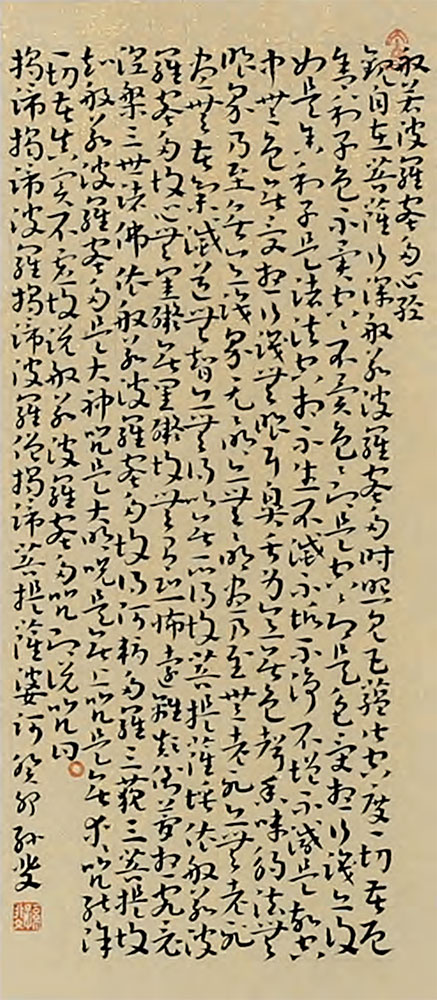 般若波羅蜜多心經
觀自在菩薩行深般若波羅蜜多時照見五蘊皆空度一切苦厄
舍利子色不異空空不異色色即是空空即是色受想行識亦復
如是舍利子是諸法空相不生不滅不垢不淨不增不減是故空
中無色無受想行識無眼耳鼻舌身意無色聲香味觸法無
眼界乃至無意識界無無明亦無無明盡乃至無老死亦無老死
盡無苦集滅道無智亦無得以無所得故菩提薩埵依般若波
羅蜜多故心無罣礙無罣礙故無有恐怖遠離顛倒夢想究竟
涅槃三世諸佛依般若波羅蜜多故得阿耨多羅三藐三菩提故
知般若波羅蜜多是大神咒是大明咒是無上咒是無等等咒能除
一切苦真實不虛故說般若波羅蜜多咒即說咒曰
揭諦揭諦波羅揭諦波羅僧揭諦菩提薩婆訶癸卯孫